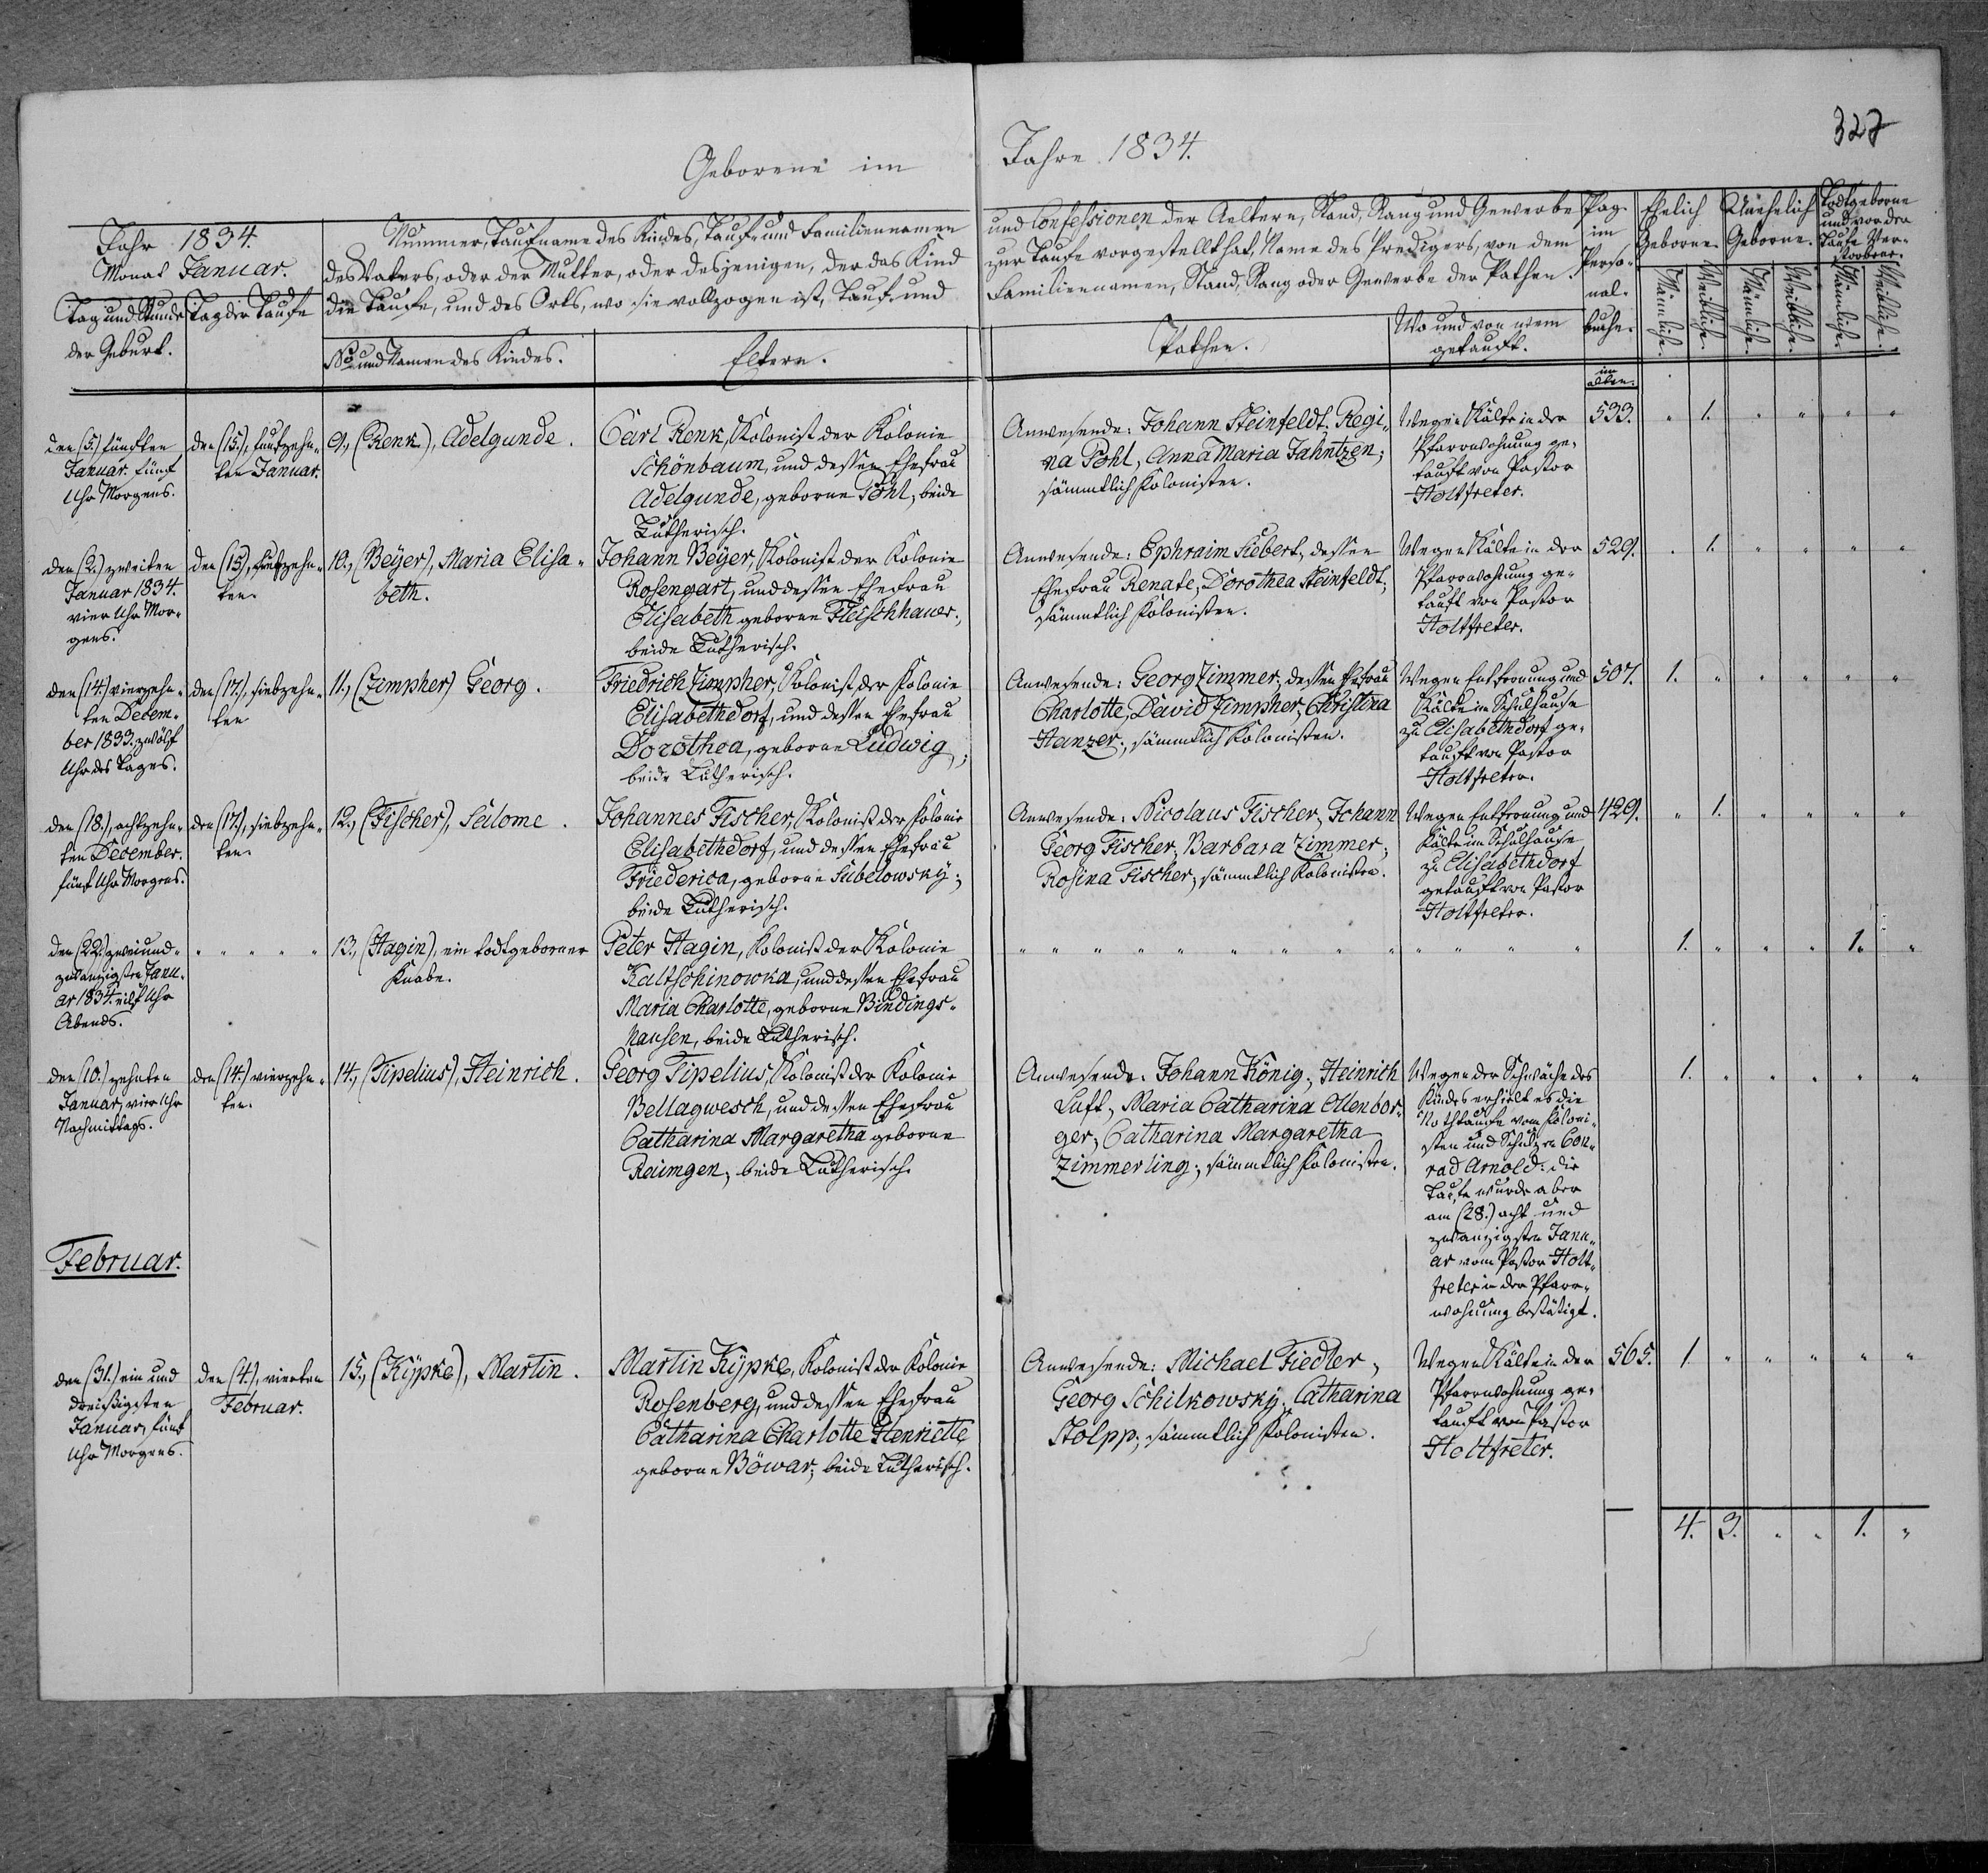 327
Geborene im Jahre 1834.
Jahr 1834.
Monat Januar.
Tag und Stunde
der Geburt.
Tag der Taufe
Nummer, Taufname des Kindes, Tauf- und Familiennamen
des Vaters, oder der Mutter, oder desjenigen, der das Kind
die Taufe, und des Orts, wo sie vollzogen ist, Tauf- und
No und Namen des Kindes.
Eltern.
und Confessionen der Aeltern, Stand, Rang und Gewerbe
zur Taufe vorgestellt hat, Name des Predigers, von dem
Familiennamen, Stand, Rang oder Gewerbe der Pathen.
Pathen.
Wo und von wem
getauft.
Pag.
im
Perso-
nal-
buche.
Ehelich
Geborne.
Unehelich
Geborne.
Todtgeborne
und vor der
Taufe Ver-
storbene.
Männliche.
Weibliche.
Männliche.
Weibliche.
Männliche.
Weibliche.
im
alten.
den (5.) fünften
Januar. fünf
Uhr Morgens.
den (15.), funfzehn-
ten Januar.
9., (Renk), Adelgunde.
Carl Renk, Kolonist der Kolonie
Schönbaum, und dessen Ehefrau
Adelgunde, geborne Pohl, beide
Lutherisch.
Anwesende: Johann Steinfeldt, Regi-
na Pohl, Anna Maria Jahntzen;
sämmtlich Kolonisten.
Wegen Kälte in der
Pfarrwohnung ge-
tauft von Pastor
Holtfreter.
533. " 1. " " " "
den (2.) zweiten
Januar 1834.
vier Uhr Mor-
gens.
den (15), funfzehn-
ten.
10., (Beÿer), Maria Elisa-
beth.
Johann Beÿer, Kolonist der Kolonie
Rosengart, und dessen Ehefrau
Elisabeth geborne Fleischhauer.,
beide Lutherisch.
Anwesende: Ephraim Siebert, dessen
Ehefrau Renate, Dorothea Steinfeldt,
sämmtlich Kolonisten.
Wegen Kälte in der
Pfarrwohnung ge-
tauft von Pastor
Holtfreter.
529. " 1. " " " "
den (14.) vierzehn-
ten Decem-
ber 1833. zwölf
Uhr des Tages.
den (17.), siebzehn-
ten
11., (Zimpher) Georg.
Friedrich Zimpher, Kolonist der Kolonie
Elisabethdorf, und dessen Ehefrau
Dorothea, geborne Ludwig,
beide Lutherisch.
Anwesende: Georg Zimmer, dessen Ehefrau
Charlotte, David Zimpher, Christina
Stanzer., sämmtlich Kolonisten.
Wegen Entfernung und
Kälte im Schulhause
zu Elisabethdorf ge-
tauft von Pastor
Holtfreter.
507. 1. " " " " "
den (18.), achtzehn-
ten December.
fünf Uhr Morgens.
den (17.), siebzehn-
ten
12., (Fischer), Salome.
Johannes Fischer, Kolonist der Kolonie
Elisabethdorf, und dessen Ehefrau
Friederica, geborne Subelowskÿ;
beide Lutherisch.
Anwesende: Nicolaus Fischer, Johann
Georg Fischer, Barbara Zimmer,
Rosina Fischer; sämmtlich Kolonisten.
Wegen Entfernung und
Kälte im Schulhause
zu Elisabethdorf
getauft von Pastor
Holtfreter.
429. " 1. " " " "
den (22.) zweiund-
zwanzigsten Janu-
ar 1834. eilf Uhr
Abends.
" " " " "
13., (Hagin), ein todtgeborner
Knabe.
Peter Hagin, Kolonist der Kolonie
Kaltschinowka, und dessen Ehefrau
Maria Charlotte, geborne Bindings-
hausen, beide Lutherisch.
" " " " " " " " " " " " "
1. " " " 1. "
den (10.) zehnten
Januar, vier Uhr
Nachmittags.
den (14.) vierzehn-
ten.
14., (Tipelius), Heinrich.
Georg Tipelius, Kolonist der Kolonie
Bellagwesch, und dessen Ehefrau
Catharina Margaretha geborne
Reimgen, beide Lutherisch.
Anwesende: Johann König, Heinrich
Luft, Maria Catharina Ollenbor-
ger, Catharina Margaretha
Zimmerling; sämmtlich Kolonisten.
Wegen der Schwäche des
Kindes erhielt es die
Nothtaufe vom Koloni-
sten und Schulzen Con-
rad Arnold: die
Taufe wurde aber
am (28.) acht und
zwanzigsten Janu-
ar vom Pastor Holt-
freter in der Pfarr-
wohnung bestätigt.
1. " " " " "
Februar.
den (31.) ein und
dreißigsten
Januar, fünf
Uhr Morgens.
den (4.), vierten
Februar.
15., (Kÿpke), Martin.
Martin Kÿpke, Kolonist der Kolonie
Rosenberg, und dessen Ehefrau
Catharina Charlotte Henriette
geborne Böwar; beide Lutherisch.
Anwesende: Michael Fiedler,
Georg Schilkowskÿ, Catharina
Stolpp; sämmtlich Kolonisten.
Wegen Kälte in der
Pfarrwohnung ge-
tauft von Pastor
Holtfreter.
565. 1. " " " " "
4. 3. " " 1. "